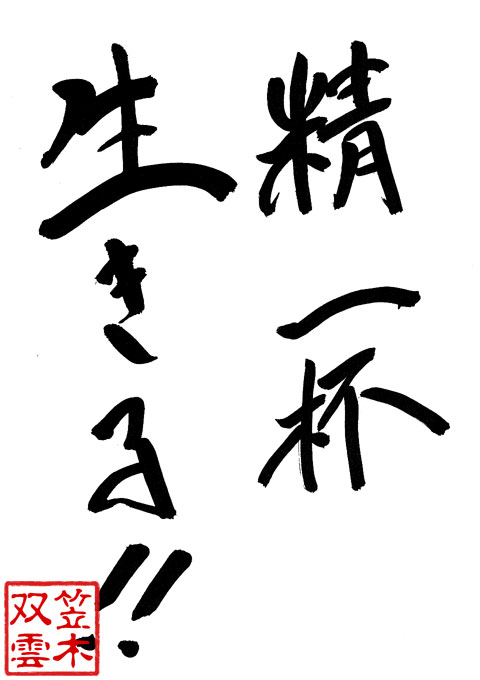 精一杯
生きる!!
笠木
双雲